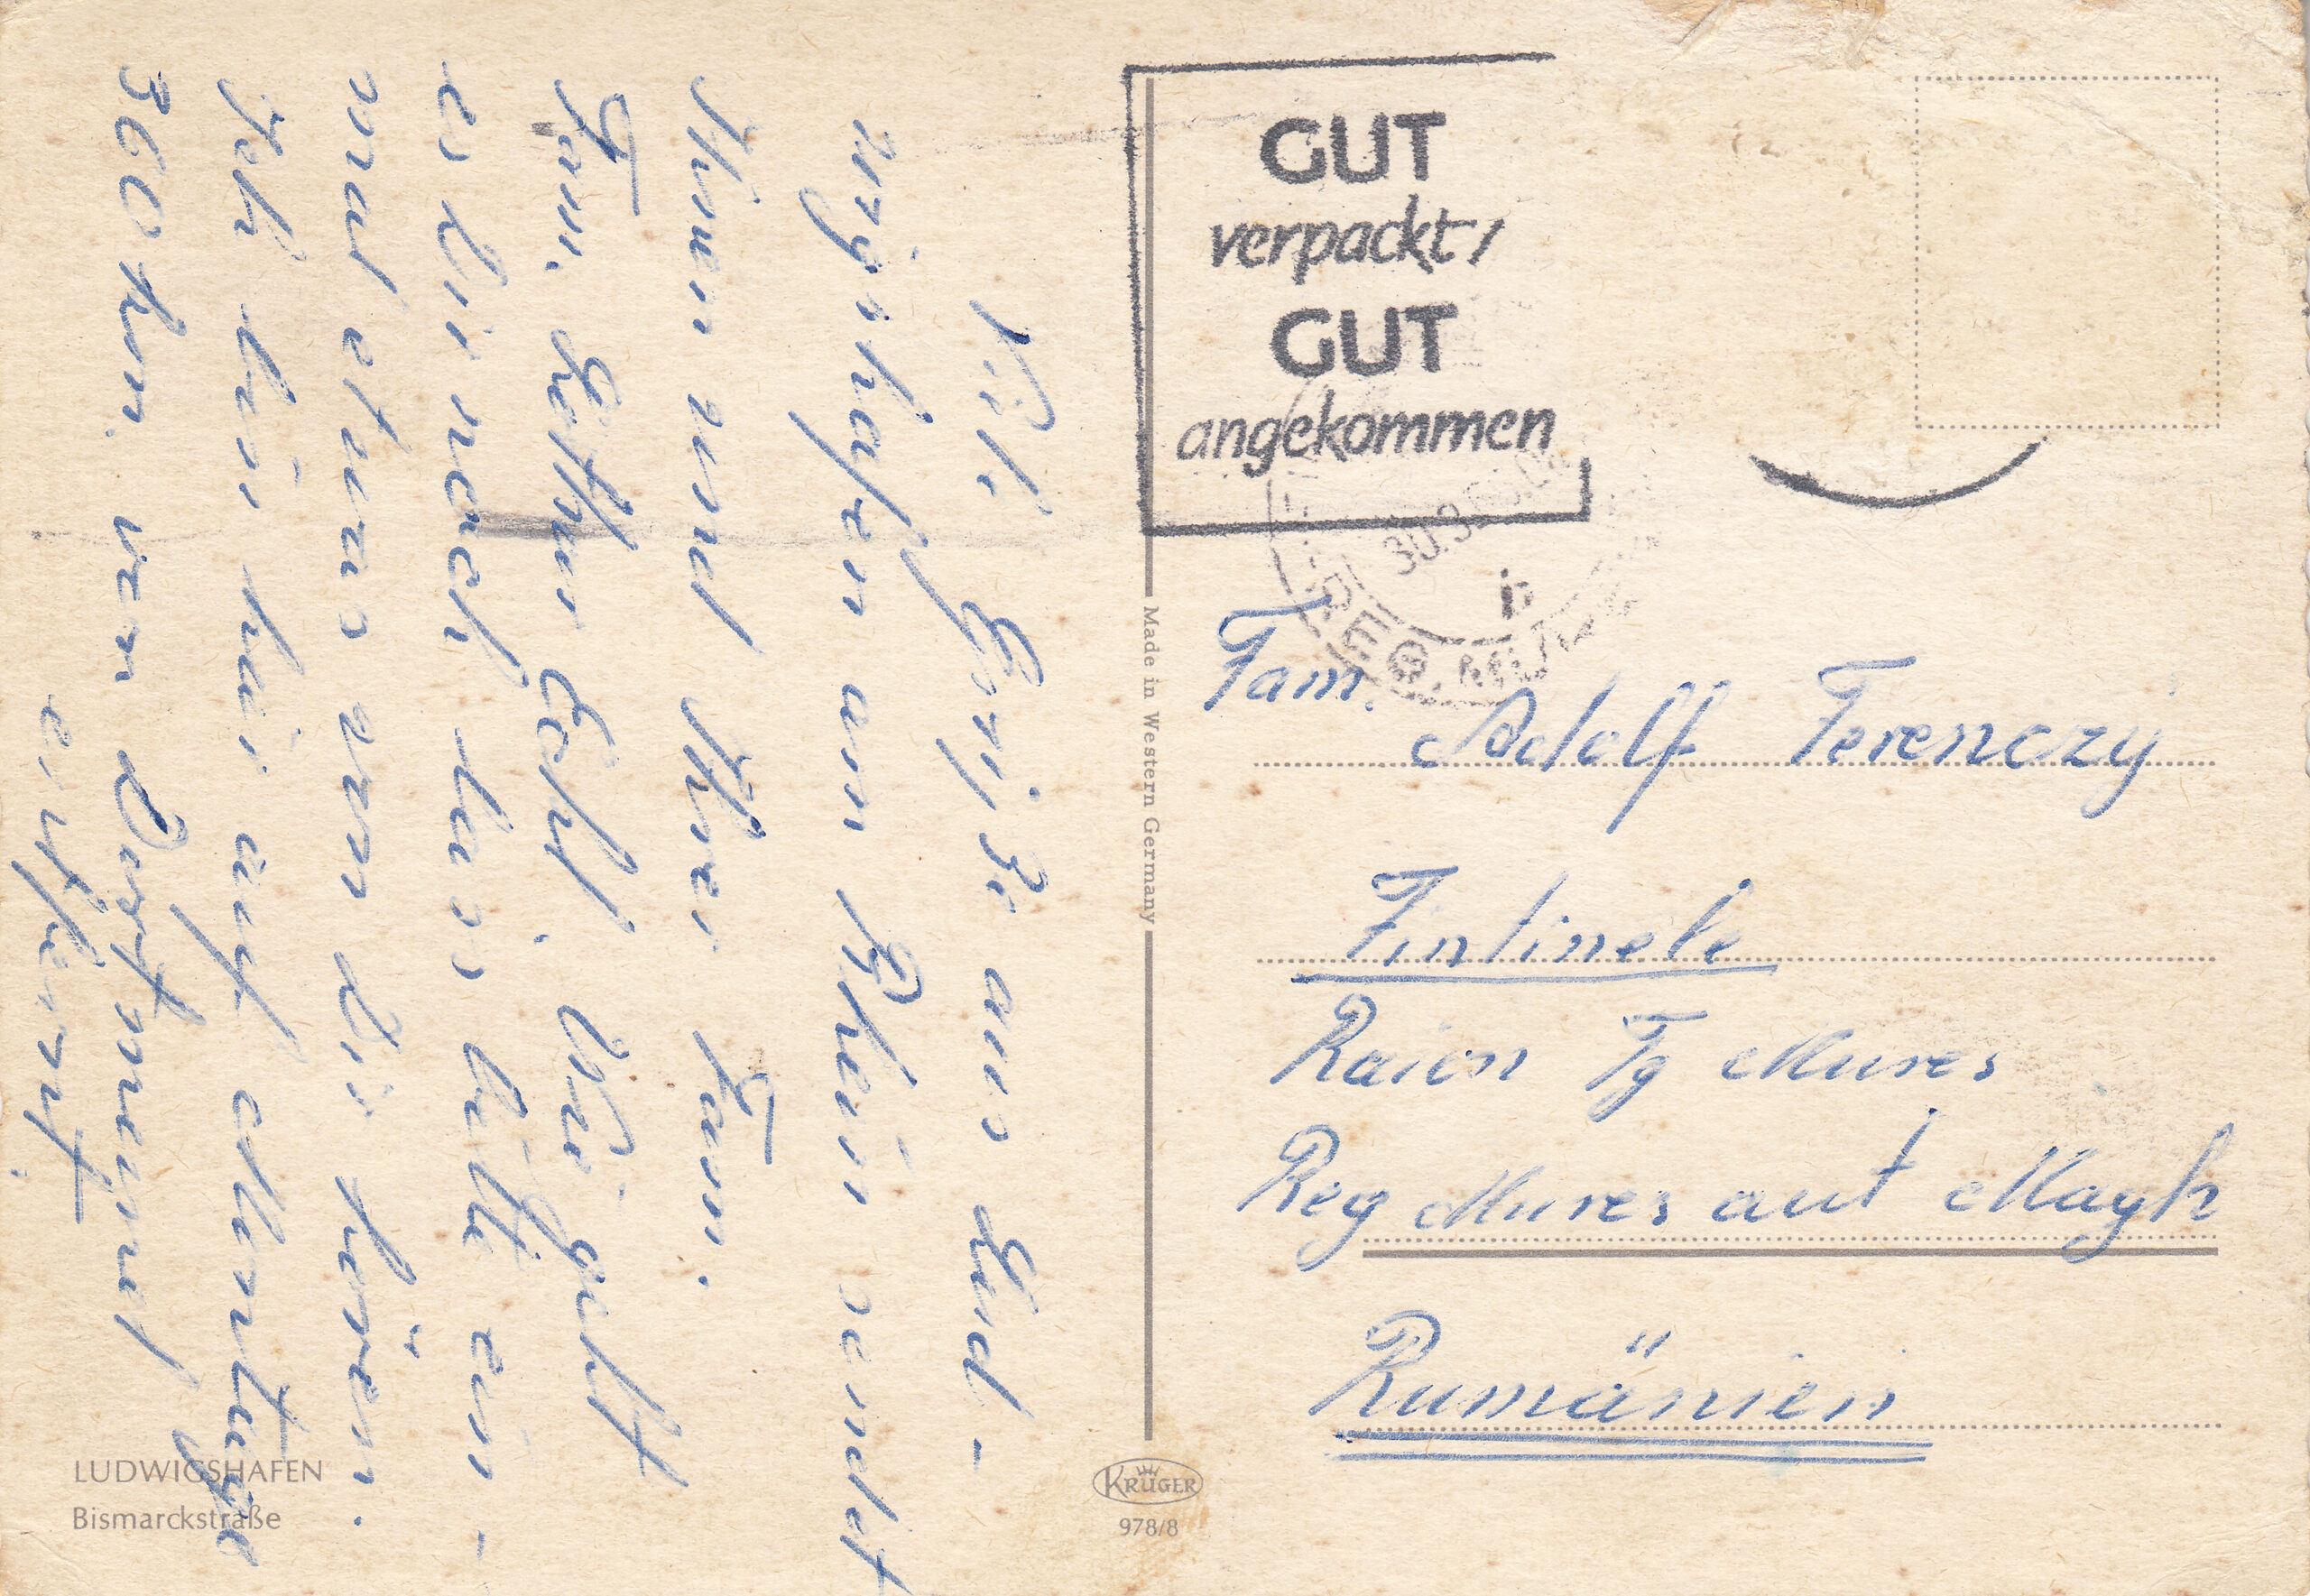 GUT
verpackt/
GUT
angekommen
30.9.
Viele Grüsze aus Lud-
wigshafen am Rhein sendet
Ihnen und Ihrer Fam.
Fam. Lothar Wie geht
es Dir noch lass bitte ein-
mal etwas von Dir hören.
Ich bin hier auf Montage
360 km von Dortmund
entfernt.
Made in Western Germany
Fam.
Adolf Ferenczy
Fintinele
Raion Tg Mures
Reg Mures aut Magh
Rumänien
LUDWIGSHAFEN
Bismarckstraße
KRÜGER
978/8